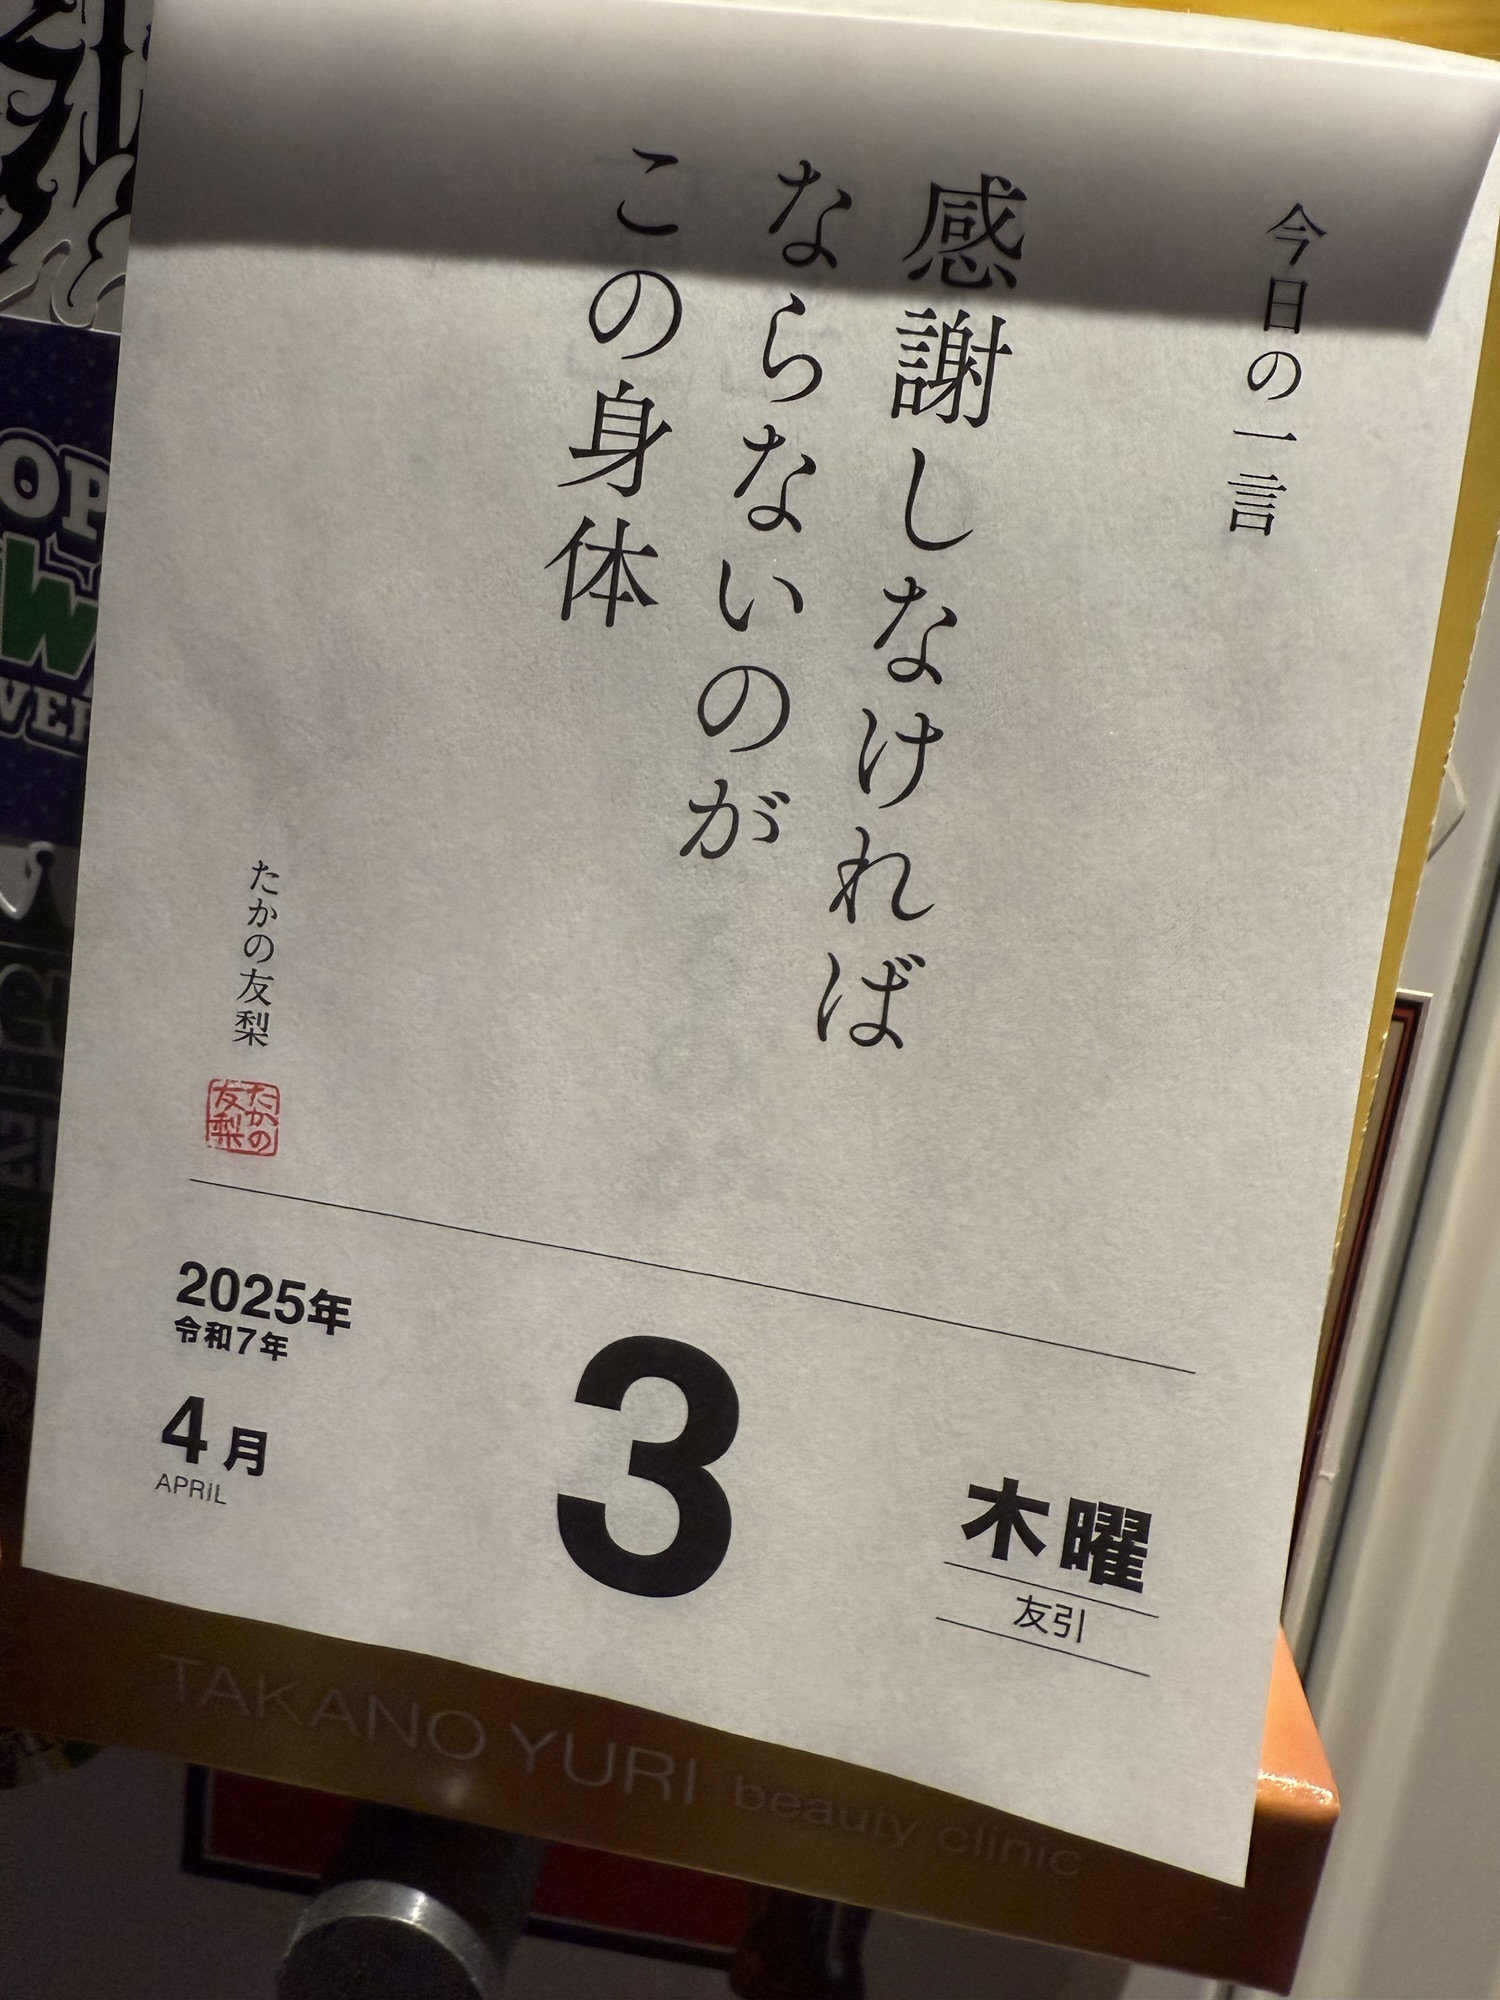 今日の一言
感謝しなければ
ならないのが
この身体
たかの友梨
たかの
友梨
2025年
令和7年
4月
APRIL
3
木曜
友引
TAKANO YURI beauty clinic
OP
W
VER